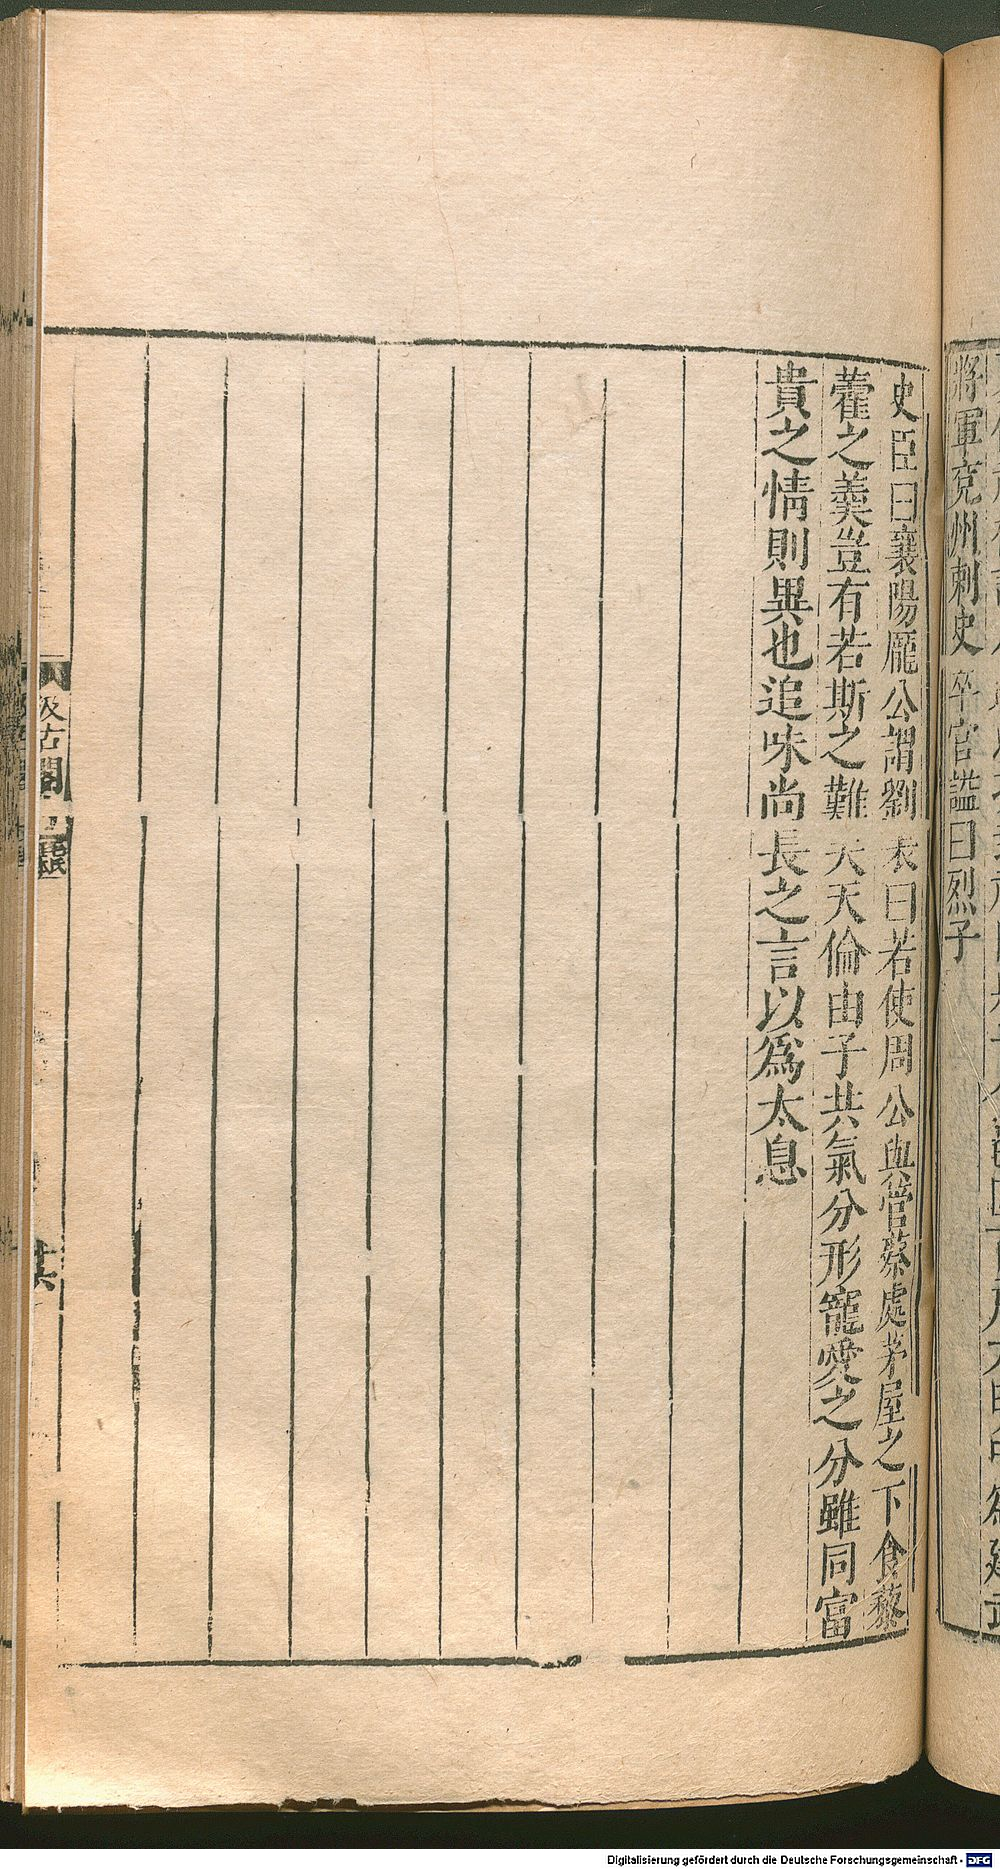 將軍兗州刺史卒官謚曰烈子
史臣曰襄陽龐公謂劉表曰若使周公與管蔡處茅屋之下食藜
藿之羹豈有若斯之難夫天倫由子共氣分形寵愛之分雖同富
貴之情則異也追味尚長之言以爲太息
汲古閣
毛氏
Digitalisierung gefördert durch die Deutsche Forschungsgemeinschaft - DFG